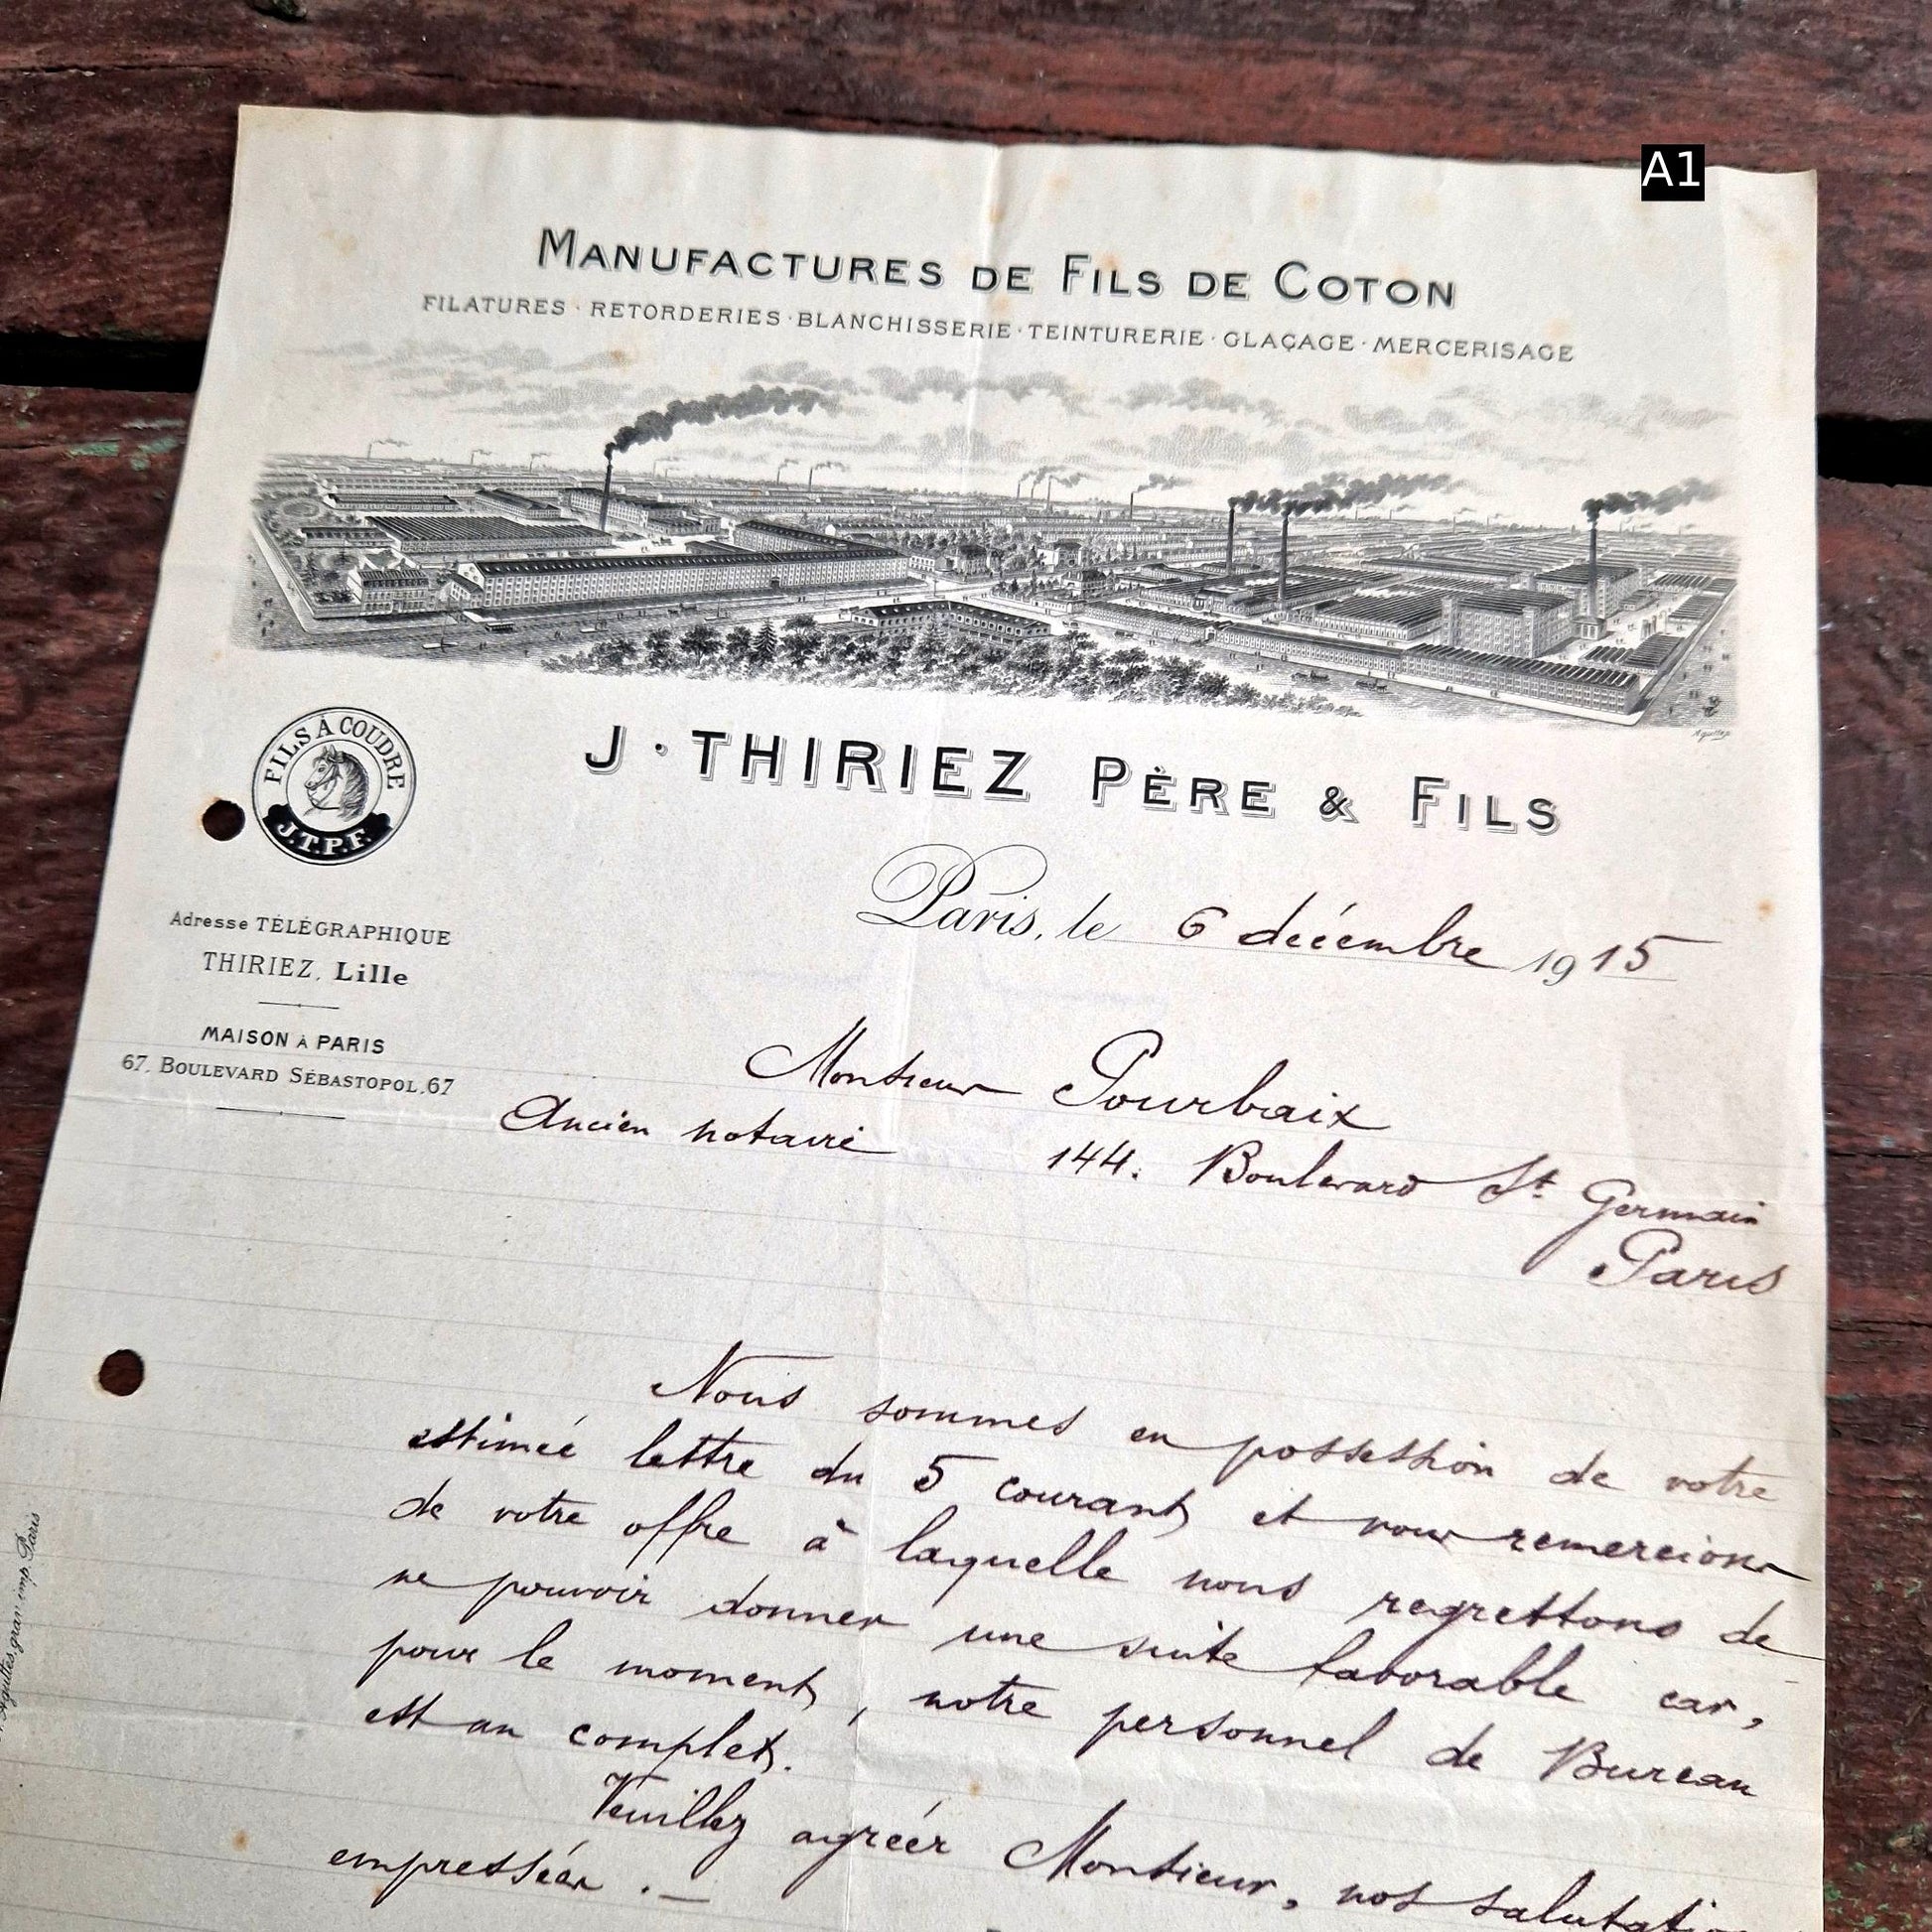 A1
MANUFACTURES DE FILS DE COTON
FILATURES · RETORDERIES · BLANCHISSERIE · TEINTURERIE · GLAÇAGE · MERCERISAGE
FILS À COUDRE
J.T.P.F.
J. THIRIEZ PÈRE & FILS
Paris, le 6 décembre 1915
Adresse TÉLÉGRAPHIQUE
THIRIEZ, Lille
MAISON À PARIS
67, BOULEVARD SÉBASTOPOL, 67
Monsieur Pourbaix
Ancien notaire
144. Boulevard St Germain
Paris
Nous sommes en possession de votre
estimée lettre du 5 courant et vous remercions
de votre offre à laquelle nous regrettons de
ne pouvoir donner une suite favorable car,
pour le moment, notre personnel de Bureau
est au complet.
Veuillez agréer Monsieur, nos salutatio
empressées. —
grav. imp. Paris